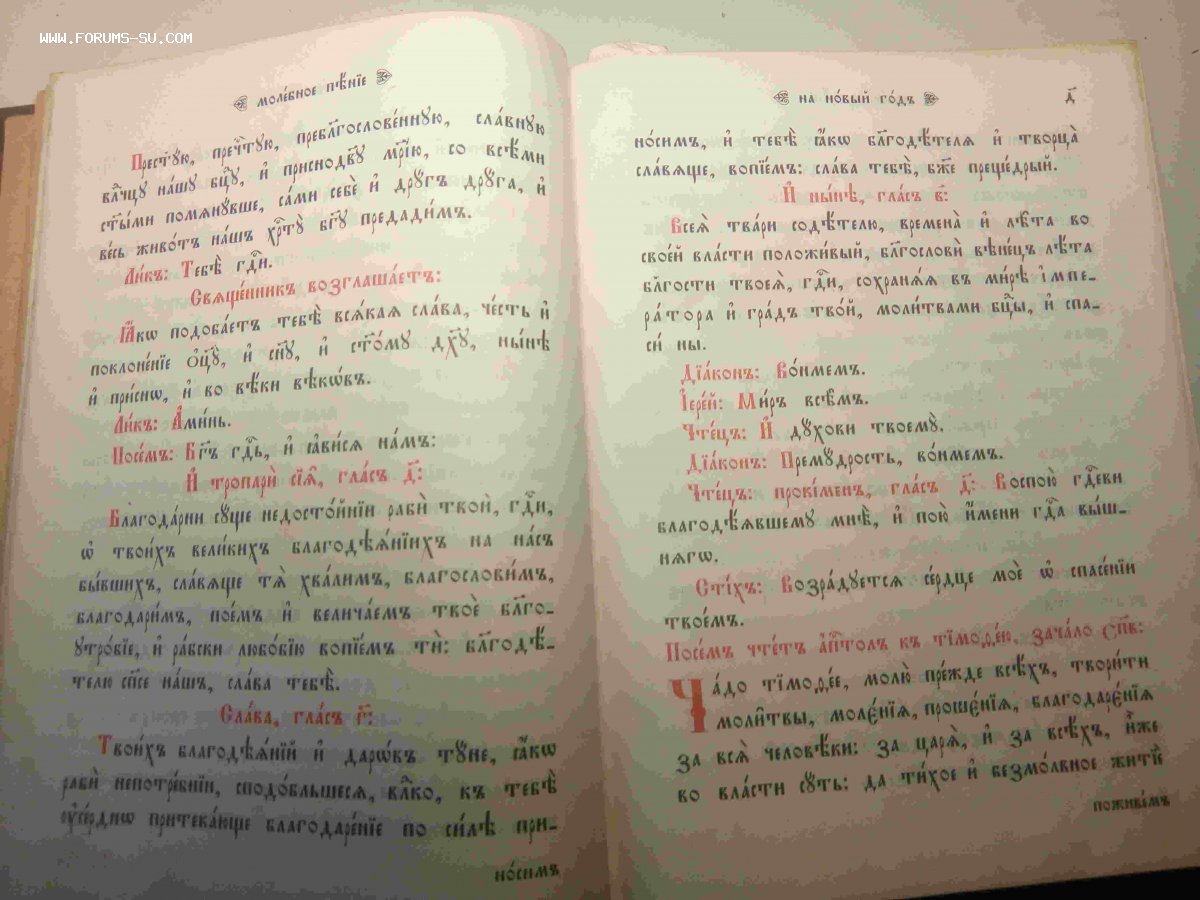 WWW.FORUMS-SU.COM
моле́бное пѣ́нїе
Прест҃ꙋ́ю, преч҇тꙋю, пребл҃гослове́ннꙋю, сла́внꙋю
влⷣчцꙋ на́шꙋ бцⷣꙋ, и҆ приснодв҃ꙋ мр҃і́ю, со всѣ́ми
ст҃ы́ми помянꙋ́вше, са́ми себѐ и҆ дрꙋ́гъ дрꙋ́га, и҆
ве́сь живо́тъ на́шъ хрⷭ҇тꙋ̀ бг҃ꙋ предади́мъ.
Ли́къ: Тебѣ̀ гдⷭ҇и.
Свяще́нникъ возглаша́етъ:
Ꙗ҆́кѡ подоба́етъ тебѣ̀ вся́кая сла́ва, че́сть и҆
поклоне́нїе ѻ҆ц҃ꙋ̀, и҆ сн҃ꙋ, и҆ ст҃о́мꙋ дх҃ꙋ, ны́нѣ
и҆ при́снѡ, и҆ во вѣ́ки вѣкѡ́въ.
Ли́къ: А҆ми́нь.
Посе́мъ: Бг҃ъ гдⷭ҇ь, и҆ ꙗ҆ви́ся на́мъ:
И҆ тропари̑ сїѧ̑, гла́съ д҃:
Благода́рни сꙋ́ще недосто́йнїи рабѝ твоѝ, гдⷭ҇и,
ѡ҆ твои́хъ вели́кихъ благодѣѧ́нїихъ на на́съ
бы́вшихъ, сла́вяще тѧ̀ хва́лимъ, благослови́мъ,
благодари́мъ, пое́мъ и҆ велича́емъ твоѐ бл҃го-
ꙋтро́бїе, и҆ ра́бски любо́вїю вопїе́мъ тѝ: бл҃годѣ́-
телю сп҃се на́шъ, сла́ва тебѣ̀.
Сла́ва, гла́съ г҃:
Твои́хъ благодѣѧ́нїй и҆ дарѡ́въ тꙋ́не, ꙗ҆́кѡ
рабѝ непотре́бнїи, сподо́бльшеся, влⷣко, къ тебѣ̀
ᲂу҆се́рднѡ притека́юще благодаре́нїе по си́лѣ при-
но́симъ
на но́вый го́дъ
д҃
но́симъ, и҆ тебѐ ꙗ҆́кѡ бл҃годѣ́теля и҆ творца̀
сла́вяще, вопїе́мъ: сла́ва тебѣ̀, бж҃е преще́дрый.
И҆ ны́нѣ, гла́съ в҃:
Всеѧ̀ тва́ри содѣ́телю, времена̀ и҆ лѣ̑та во
свое́й вла́сти положи́вый, бл҃гословѝ вѣне́цъ лѣ́та
бл҃гости твоеѧ̀, гдⷭ҇и, сохраня́я въ ми́рѣ і҆мпе-
ра́тора и҆ гра́дъ тво́й, моли́твами бцⷣы, и҆ спа-
сѝ ны.
Дїа́конъ: Во́нмемъ.
І҆ере́й: Ми́ръ всѣ̑мъ.
Чте́цъ: И҆ дꙋ́хови твоемꙋ̀.
Дїа́конъ: Премꙋ́дрость, во́нмемъ.
Чте́цъ: проки́менъ, гла́съ д҃: Воспою̀ гдⷭ҇еви
благодѣ́явшемꙋ мнѣ̀, и҆ пою̀ и҆́мени гдⷭ҇а вы́ш-
нягѡ.
Сті́хъ: Возра́дꙋется се́рдце моѐ ѡ҆ спасе́нїи
твое́мъ.
Посе́мъ чте́тъ а҆пⷭ҇толъ къ тїмоѳе́ю, зача́ло сп҃в:
Ча́до тїмоѳе́е, молю̀ пре́жде всѣ́хъ, твори́ти
моли̑твы, молє́нїя, прошє́нїя, благодарє́нїя
за вся̀ человѣ́ки: за царя̀, и҆ за всѣ́хъ, и҆̀же
во вла́сти сꙋ́ть: да ти́хое и҆ безмо́лвное житїѐ
поживе́мъ